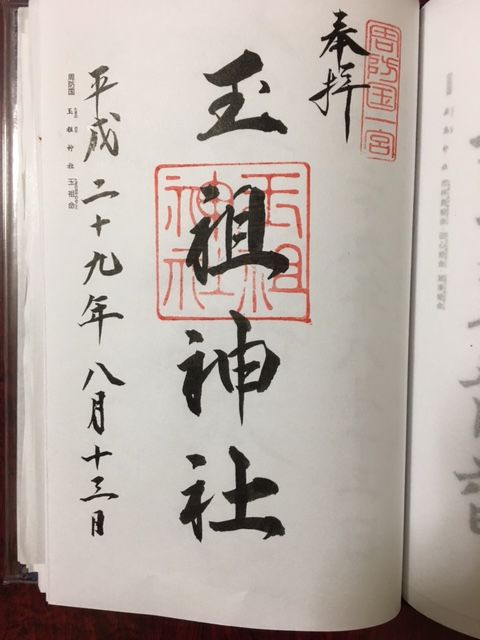 周防国一宮
奉拝
玉祖神社
玉祖神社
平成二十九年八月十三日
周防国 玉祖神社 玉祖命